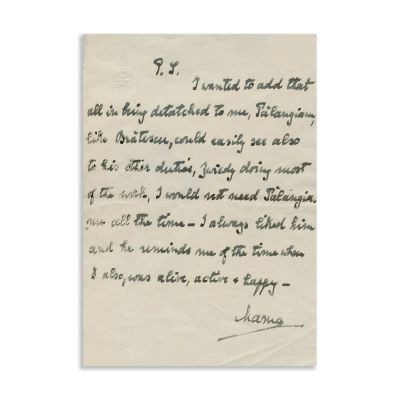 P.S.
I wanted to add that
all in being detatched to me, Pălangianu,
like Brătescu, could easily see also
to his other duties, Zwiedy doing most
of the work, I would not need Pălangia-
nu all the time — I always liked him
and he reminds me of the time when
I also, was alive, active + happy —
Mama